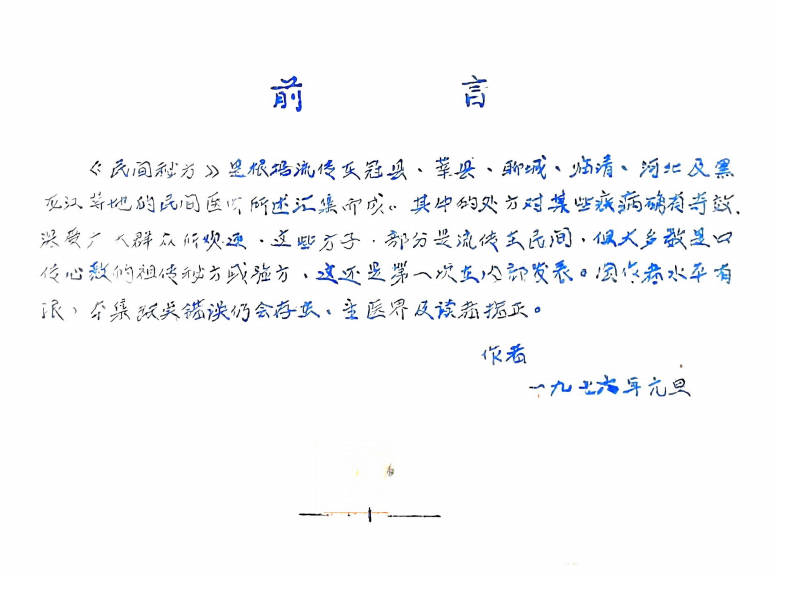 前 言
《民间秘方》是根据流传在冠县、莘县、聊城、临清、河北及黑
龙江等地的民间医师所述汇集而成。其中的处方对某些疾病确有奇效,
深受广大群众所欢迎、这些方子,部分是流传在民间,但大多数是口
传心教的祖传秘方或验方,这还是第一次在内部发表。因作者水平有
限,本集缺点错误仍会存在、望医界及读者指正。
作者
一九七六年元旦